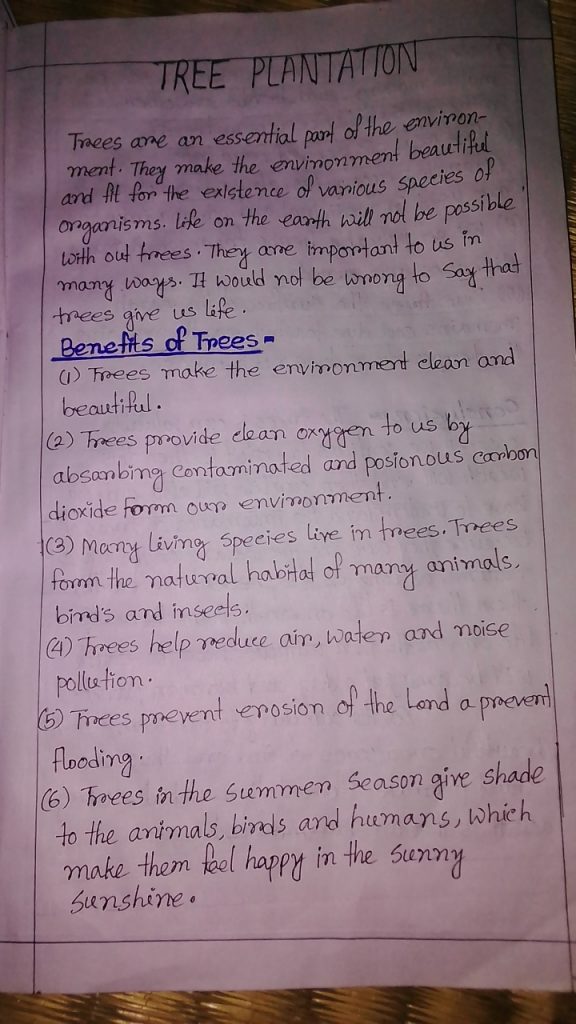 TREE PLANTATION
Trees are an essential part of the environ-
ment. They make the environment beautiful
and fit for the exIstence of various species of
organisms. life on the earth will not be possible
with out trees. They are important to us in
many ways. It would not be wrong to say that
trees give us life.
Benefits of Trees-
(1) Trees make the environment clean and
beautiful.
(2) Trees provide clean oxygen to us by
absarbing contaminated and posionous carbon
dioxide form our environment.
(3) Many living species live in trees. Trees
form the natural habital of many animals,
bird's and insects.
(4) Trees help reduce air, water and noise
pollution.
(5) Trees prevent erosion of the Land a prevent
flooding.
(6) Trees in the summer season give shade
to the animals, birds and humans, which
make them feel happy in the sunny
sunshine.